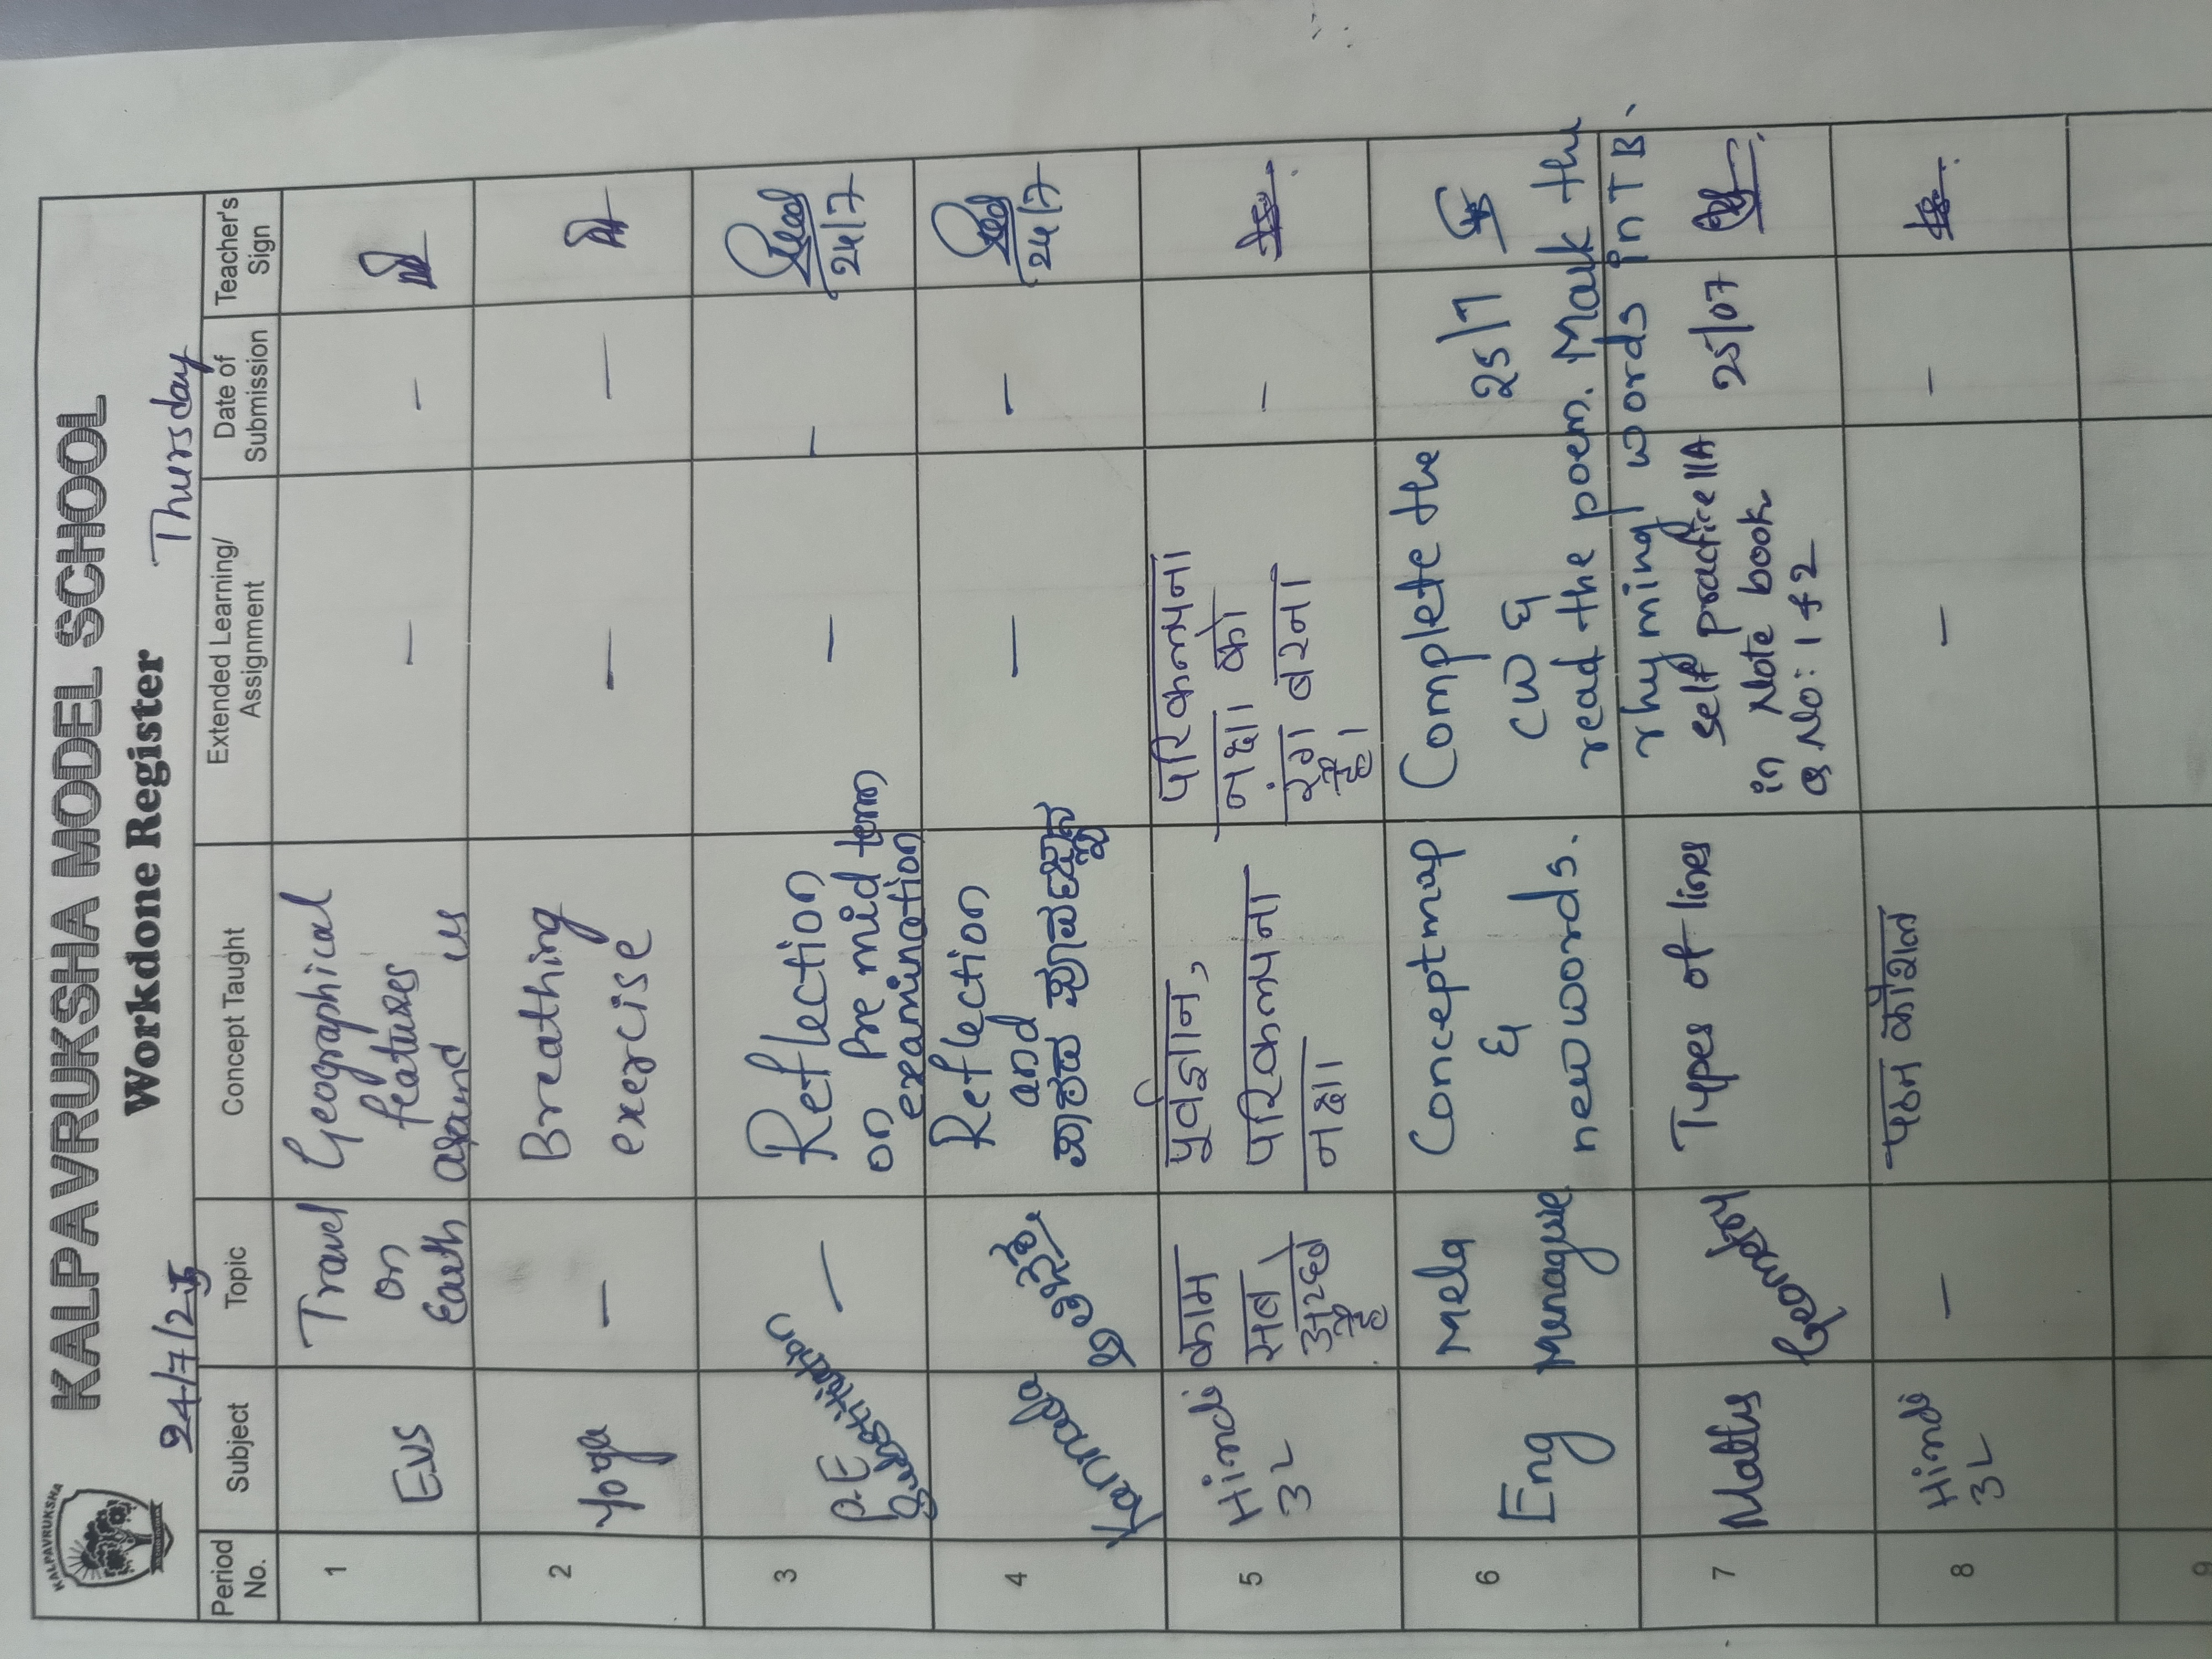 KALPAVRUKSHA
KALPAVRUKSHA MODEL SCHOOL
Workdone Register
24/7/25 Thursday
Period No. Subject Topic Concept Taught Extended Learning/ Assignment Date of Submission Teacher's Sign
1 EVS Travel on Earth Geographical features around us – –
2 Yoga – Breathing exercise – –
3 P.E Substitution – Reflection on Pre mid term examination – – 24/7
4 Kannada Reflection and – – 24/7
5 Hindi 3L काम सब अच्छे है पुर्वज्ञान, परिकल्पना नक्षा। परिकल्पना नक्षा को रंग बरना है। –
6 Eng Mela Menagerie Conceptmap & new words. Complete the CW & read the poem. Mark the rhyming words in TB. 25/7
7 Maths Geometry Types of lines Self practice 11A in Note book Q No: 1 & 2 25/07
8 Hindi 3L – पठन कौशल – –
9